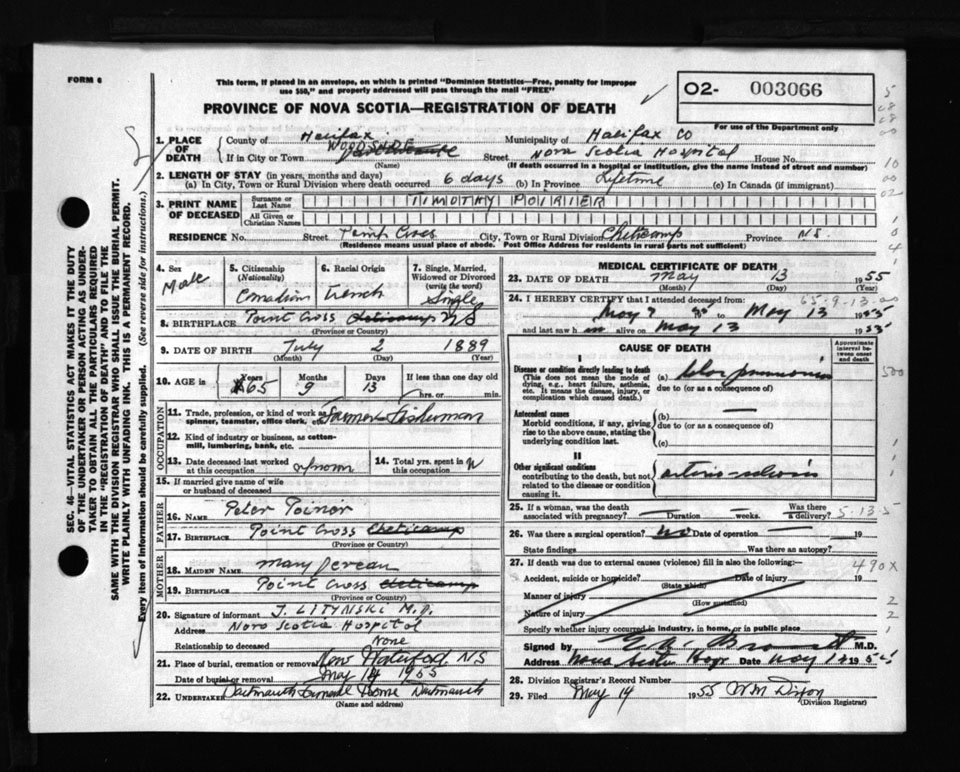 FORM 6
This form, if placed in an envelope, on which is printed "Dominion Statistics—Free, penalty for improper
use $50," and properly addressed will pass through the mail "FREE"
PROVINCE OF NOVA SCOTIA—REGISTRATION OF DEATH
O2- 003066
For use of the Department only
SEC. 46—VITAL STATISTICS ACT MAKES IT THE DUTY
OF THE UNDERTAKER OR PERSON ACTING AS UNDER-
TAKER TO OBTAIN ALL THE PARTICULARS REQUIRED
IN THE "REGISTRATION OF DEATH" AND TO FILE THE
SAME WITH THE DIVISION REGISTRAR WHO SHALL ISSUE THE BURIAL PERMIT.
WRITE PLAINLY WITH UNFADING INK. THIS IS A PERMANENT RECORD.
Every item of information should be carefully supplied. (See reverse side for instructions.)
1. PLACE OF DEATH County of Halifax Municipality of Halifax Co
If in City or Town WOODSIDE Street Nova Scotia Hospital House No.
(Name) (If death occurred in a hospital or institution, give the name instead of street and number)
2. LENGTH OF STAY (in years, months and days)
(a) In City, Town or Rural Division where death occurred 6 days (b) In Province Lifetime (c) In Canada (if immigrant)
3. PRINT NAME OF DECEASED Surname or Last Name TIMOTHY POIRIER
All Given or Christian Names
RESIDENCE No. Street Cross City, Town or Rural Division Cheticamp Province N.S.
(Residence means usual place of abode. Post Office Address for residents in rural parts not sufficient)
4. Sex Male
5. Citizenship (Nationality) Canadian
6. Racial Origin French
7. Single, Married, Widowed or Divorced (write the word) Single
8. BIRTHPLACE Point Cross Cheticamp NS
(Province or Country)
9. DATE OF BIRTH July 2 1889
(Month) (Day) (Year)
10. AGE in Years 65 Months 9 Days 13 If less than one day old hrs. or min.
OCCUPATION
11. Trade, profession, or kind of work as spinner, teamster, office clerk, etc. Farmer-Fisherman
12. Kind of industry or business, as cotton-mill, lumbering, bank, etc.
13. Date deceased last worked at this occupation unknown 14. Total yrs. spent in this occupation
15. If married give name of wife or husband of deceased
FATHER
16. NAME Peter Poirior
17. BIRTHPLACE Point Cross Cheticamp
(Province or Country)
MOTHER
18. MAIDEN NAME Mary
19. BIRTHPLACE Point Cross Cheticamp
(Province or Country)
20. Signature of informant J. LITYNSKI M.D.
Address Nova Scotia Hospital
Relationship to deceased None
21. Place of burial, cremation or removal New Waterford, NS
Date of burial or removal May 14 1955
22. UNDERTAKER Dartmouth Funeral Home Dartmouth
(Name and address)
MEDICAL CERTIFICATE OF DEATH
23. DATE OF DEATH May 13 1955
(Month) (Day) (Year)
65-9-13-
24. I HEREBY CERTIFY that I attended deceased from:
May 7 to May 13 1955
and last saw h im alive on May 13 1955
CAUSE OF DEATH
Approximate interval between onset and death
I
Disease or condition directly leading to death
(This does not mean the mode of dying, e.g., heart failure, asthenia, etc. It means the disease, injury, or complication which caused death.)
(a) lobar pneumonia
due to (or as a consequence of)
Antecedent causes
Morbid conditions, if any, giving rise to the above cause, stating the underlying condition last.
(b)
due to (or as a consequence of)
(c)
II
Other significant conditions
contributing to the death, but not related to the disease or condition causing it.
arterio-sclerosis
25. If a woman, was the death associated with pregnancy? Duration weeks. Was there a delivery?
26. Was there a surgical operation? No Date of operation 19
State findings Was there an autopsy?
27. If death was due to external causes (violence) fill in also the following:—
490X
Accident, suicide or homicide? Date of injury 19
(State which)
Manner of injury
(How sustained)
Nature of injury
Specify whether injury occurred in industry, in home, or in public place
Signed by M.D.
Address Nova Scotia Hosp Date May 1955
28. Division Registrar's Record Number
29. Filed May 14 1955 W M Dixon
(Division Registrar)